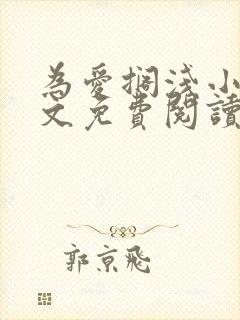 為愛擱淺小
文免費閱讀
郭京飛